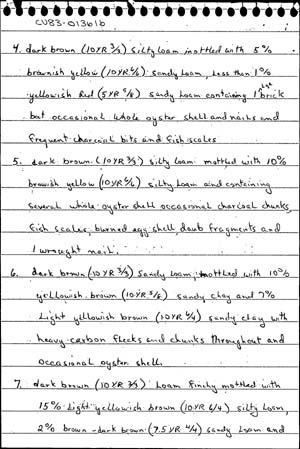 CU83-01361b
4. dark brown (10YR 3/3) silty loam mottled with 5%
brownish yellow (10YR 6/6) sandy loam, less than 1%
yellowish Red (5YR 5/8) sandy loam containing 1 brick
bat occasional whole oyster shell and nails and
frequent charcoal bits and fish scales
5. dark brown (10YR 3/3) silty loam mottled with 10%
browish yellow (10YR 6/6) silty loam and containing
several whole oyster shell occasional charcoal chunks,
fish scales, burned egg shell, daub fragments and
1 wrought nail.
6. dark brown (10YR 3/3) sandy loam, mottled with 10%
yellowish brown (10YR 5/6) sandy clay and 7%
Light yellowish brown (10YR 6/4) sandy clay with
heavy carbon flecks and chunks throughout and
occasional oyster shell.
7. dark brown (10YR 3/3) loam finely mottled with
15% Light yellowish brown (10YR 6/4) silty loam,
2% brown-dark brown (7.5YR 4/4) sandy loam and